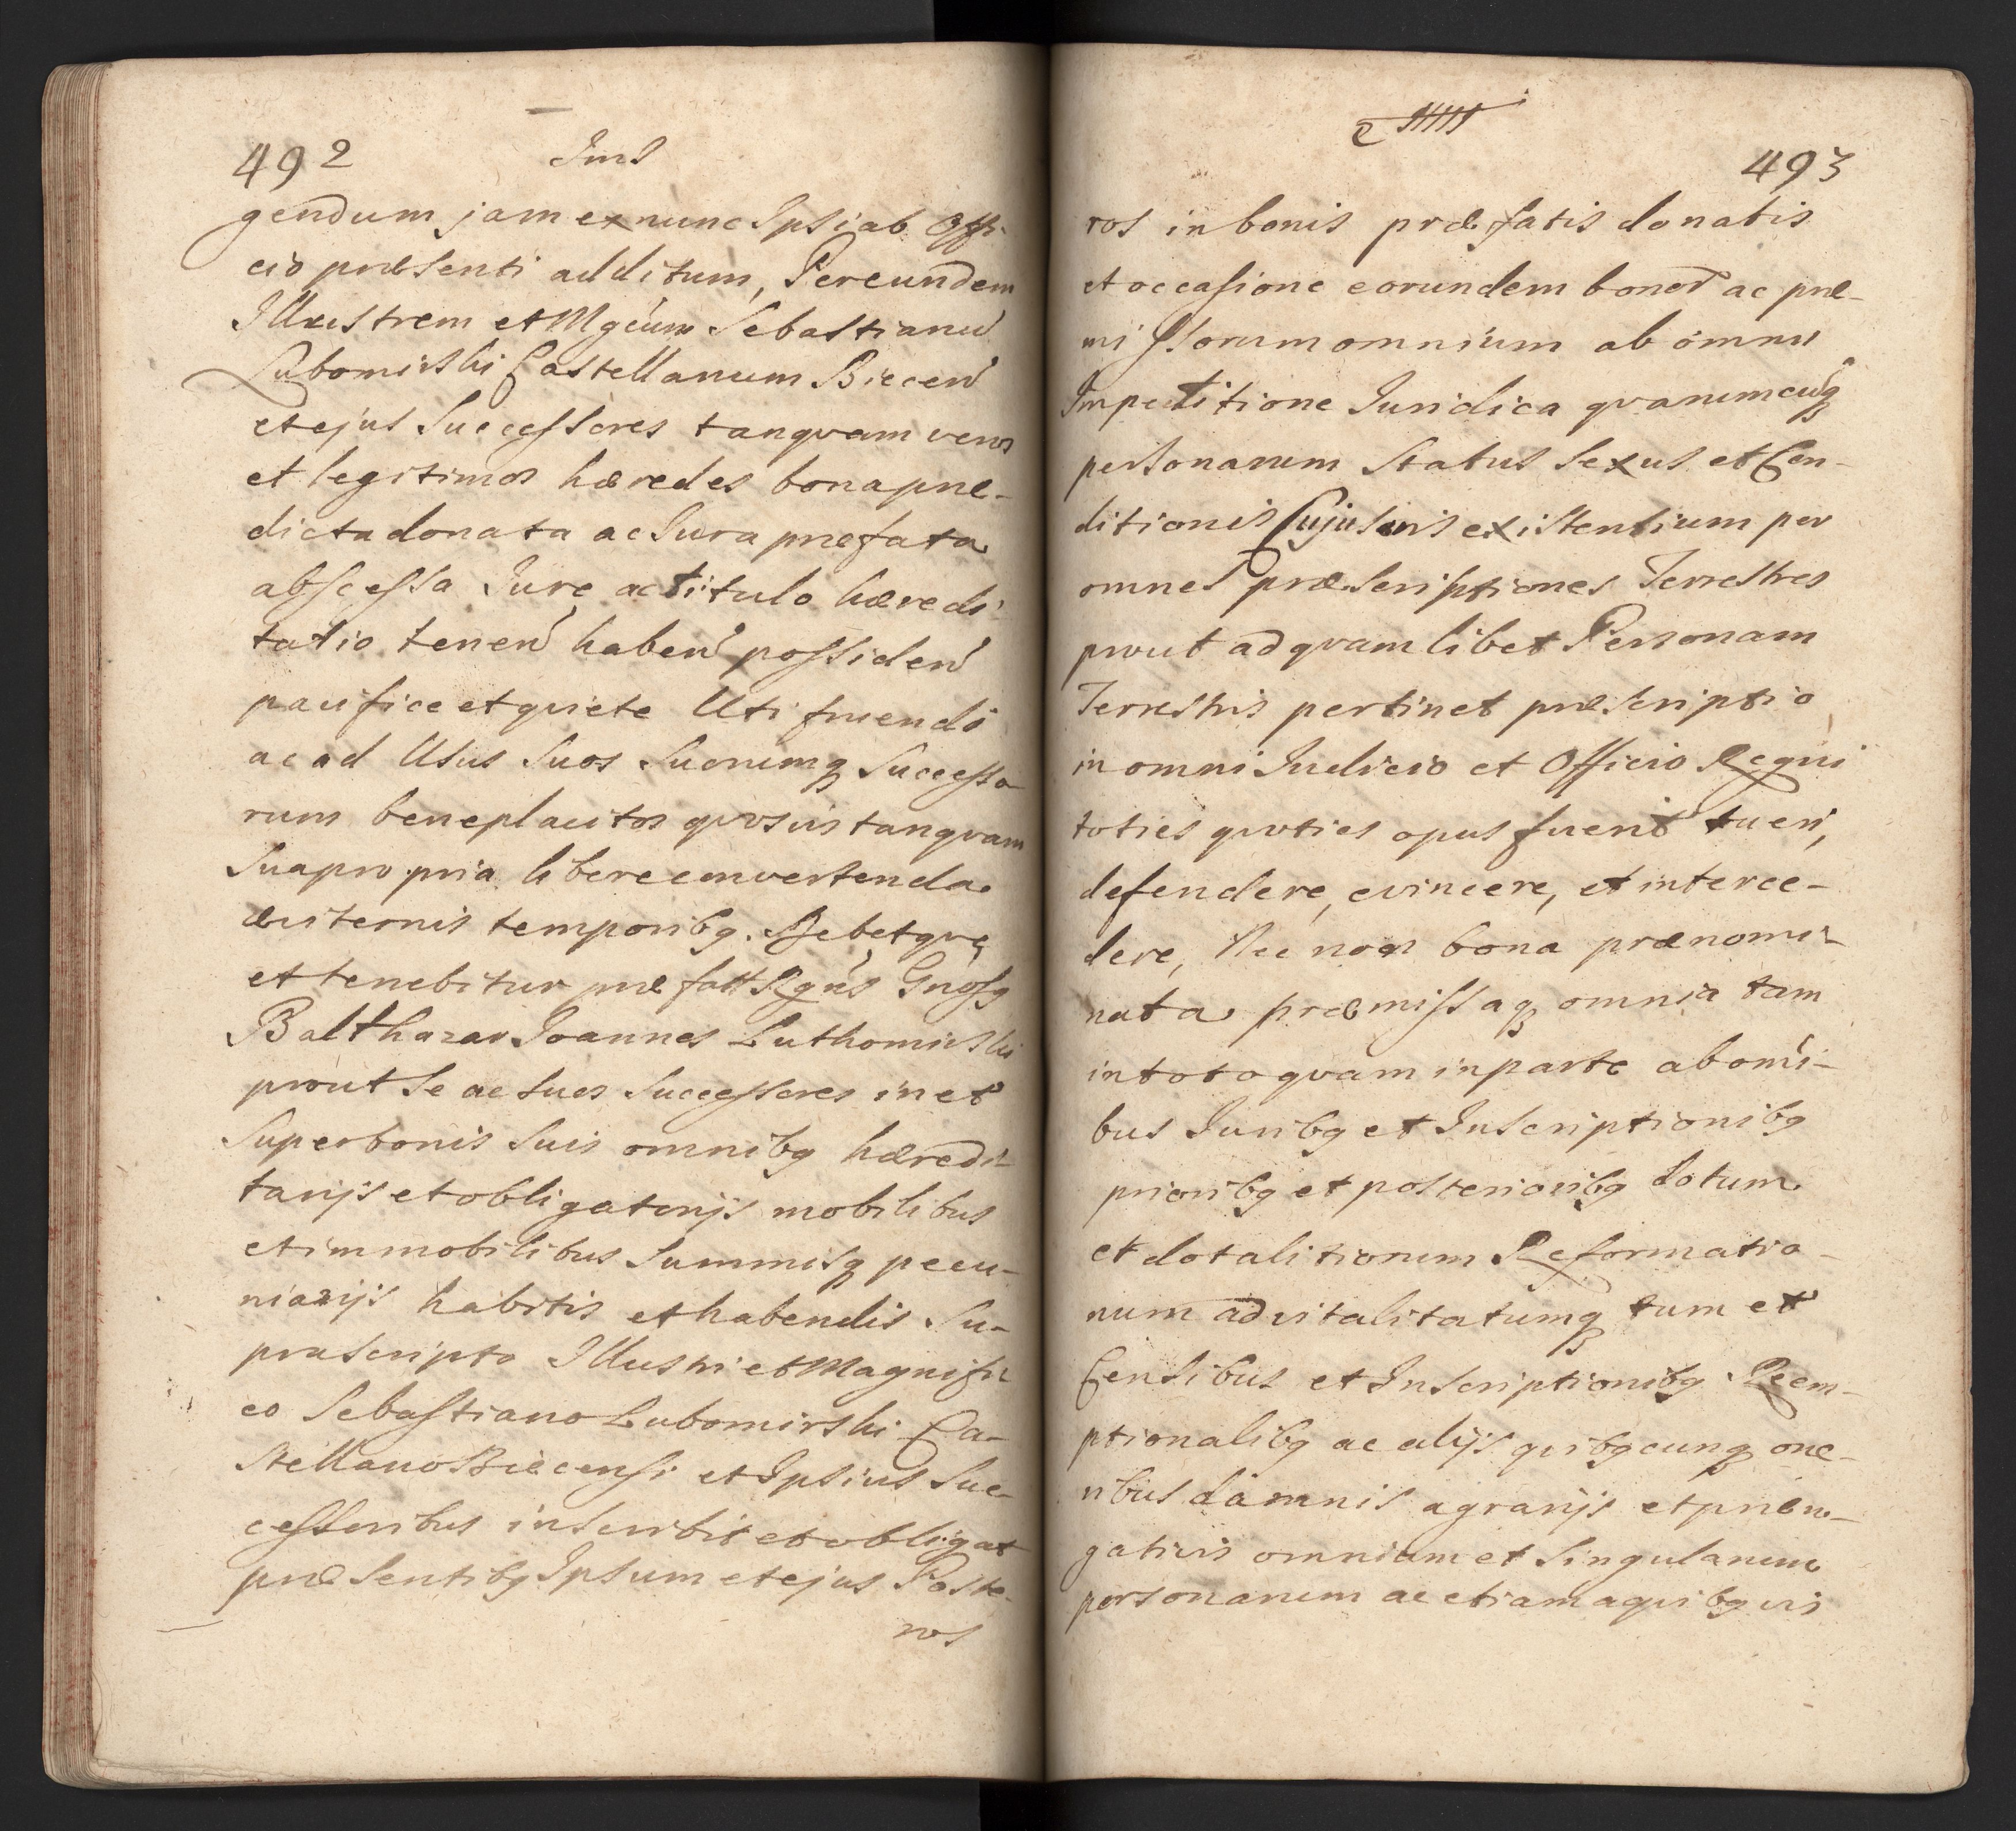 492 Ims
gendum jam ex nunc Ipsi ab Offi-
cio præsenti additum, Per eundem
Illustrem et Mgcum Sebastianu͂
Lubomirski Castellanum Biecen͂
et ejus Successores tanqvam veros
et legitimos hæredes bona præ-
dicta donata ac Jura præfata
abscessa Jure ac titulo hæredi-
tatio tenen͂ haben͂ possiden͂
pacifice et qviete Uti fruendi
ac ad Usus Suos Suorumq Successo-
rum beneplacitos qvosvis tanqvam
Sua propria libere convertenda
æviternis temporibq. Debetqve
et tenebitur præfatt Rgn͂s Gnosq
Balthazar Joannes Luthomirski
prout Se ac Suos Successores in et
Super bonis Suis omnibq hæredi-
tarijs et obligatorijs mobilibus
et immobilibus Summisq pecu-
niarijs habitis et habendis Su-
prascripto Illustri et Magnifi-
co Sebastiano Lubomirski Ca-
stellano Biecensi et Ipsius Suc-
cessoribus inscribit et obligat
præsentibq Ipsum et ejus Poste-
ros
493
ros in bonis præfatis donatis
et occasione eorundem bonor͂ ac præ-
missorum omnium ab omni
Impetitione Juridica qvarumcunq
personarum Status Sexus et Con-
ditionis Cujusvis existentium per
omnes præscriptiones Terrestres
prout ad qvamlibet Personam
Terrestris pertinet præscriptio
in omni Judicio et Officio Regni
toties qvoties opus fuerit tueri,
defendere, evincere, et interce-
dere, Nec non bona prænomi-
nata præmissaq omnia tam
in toto qvam in parte ab om͂i-
bus Juribq et Inscriptionibq
prioribq et posterioribq dotum
et dotalitiorum Reformatio-
num advitalitatumq tum et
Censibus et Inscriptionibq Reem-
ptionalibq ac alijs qvibqcunq one-
ribus damnis agrarijs et præro-
gativis omnium et Singularum
personarum ac etiam a qvibqvis